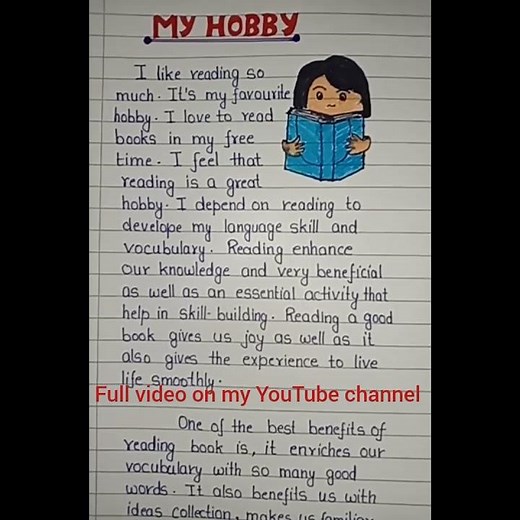 MY HOBBY
I like reading so
much. It's my favourite
hobby. I love to read
books in my free
time. I feel that
reading is a great
hobby. I depend on reading to
develope my language skill and
vocubulary. Reading enhance
our knowledge and very beneficial
as well as an essential activity that
help in skill-building. Reading a good
book gives us joy as well as it
also gives the experience to live
life smoothly.
Full video on my YouTube channel
One of the best benefits of
reading book is, it enriches our
vocubulary with so many good
words. It also benefits us with
ideas collection, makes us familiar